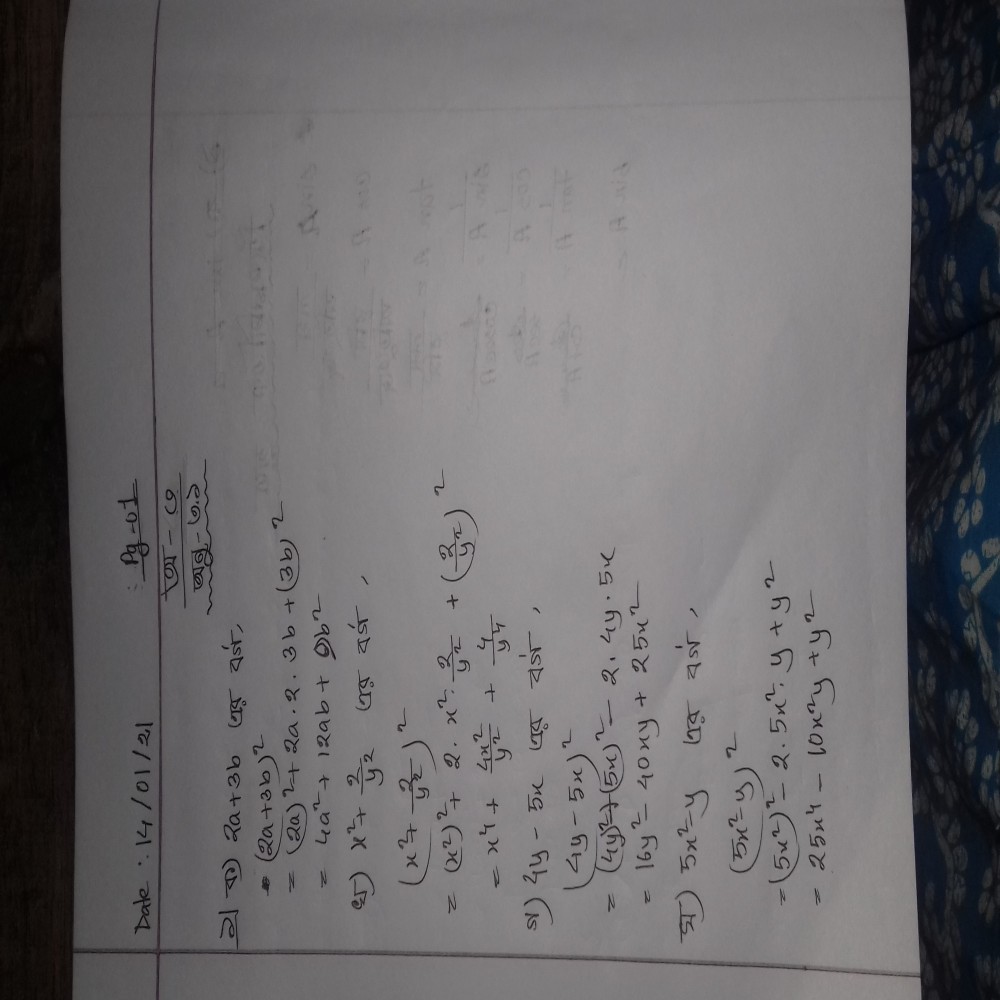 Date : 14/01/21
: Pg-01
অ - ৩
অনু - ৩.১
১| ক) 2a+3b এর বর্গ,
(2a+3b)²
= (2a)² + 2a . 2 . 3b + (3b)²
= 4a² + 12ab + 9b²
খ) x² + 2/y² এর বর্গ,
(x² + 2/y²)²
= (x²)² + 2 . x² . 2/y² + (2/y²)²
= x⁴ + 4x²/y² + 4/y⁴
গ) 4y - 5x এর বর্গ,
(4y - 5x)²
= (4y)² + (5x)² - 2 . 4y . 5x
= 16y² - 40xy + 25x²
ঘ) 5x² - y এর বর্গ,
(5x² - y)²
= (5x²)² - 2 . 5x² . y + y²
= 25x⁴ - 10x²y + y²